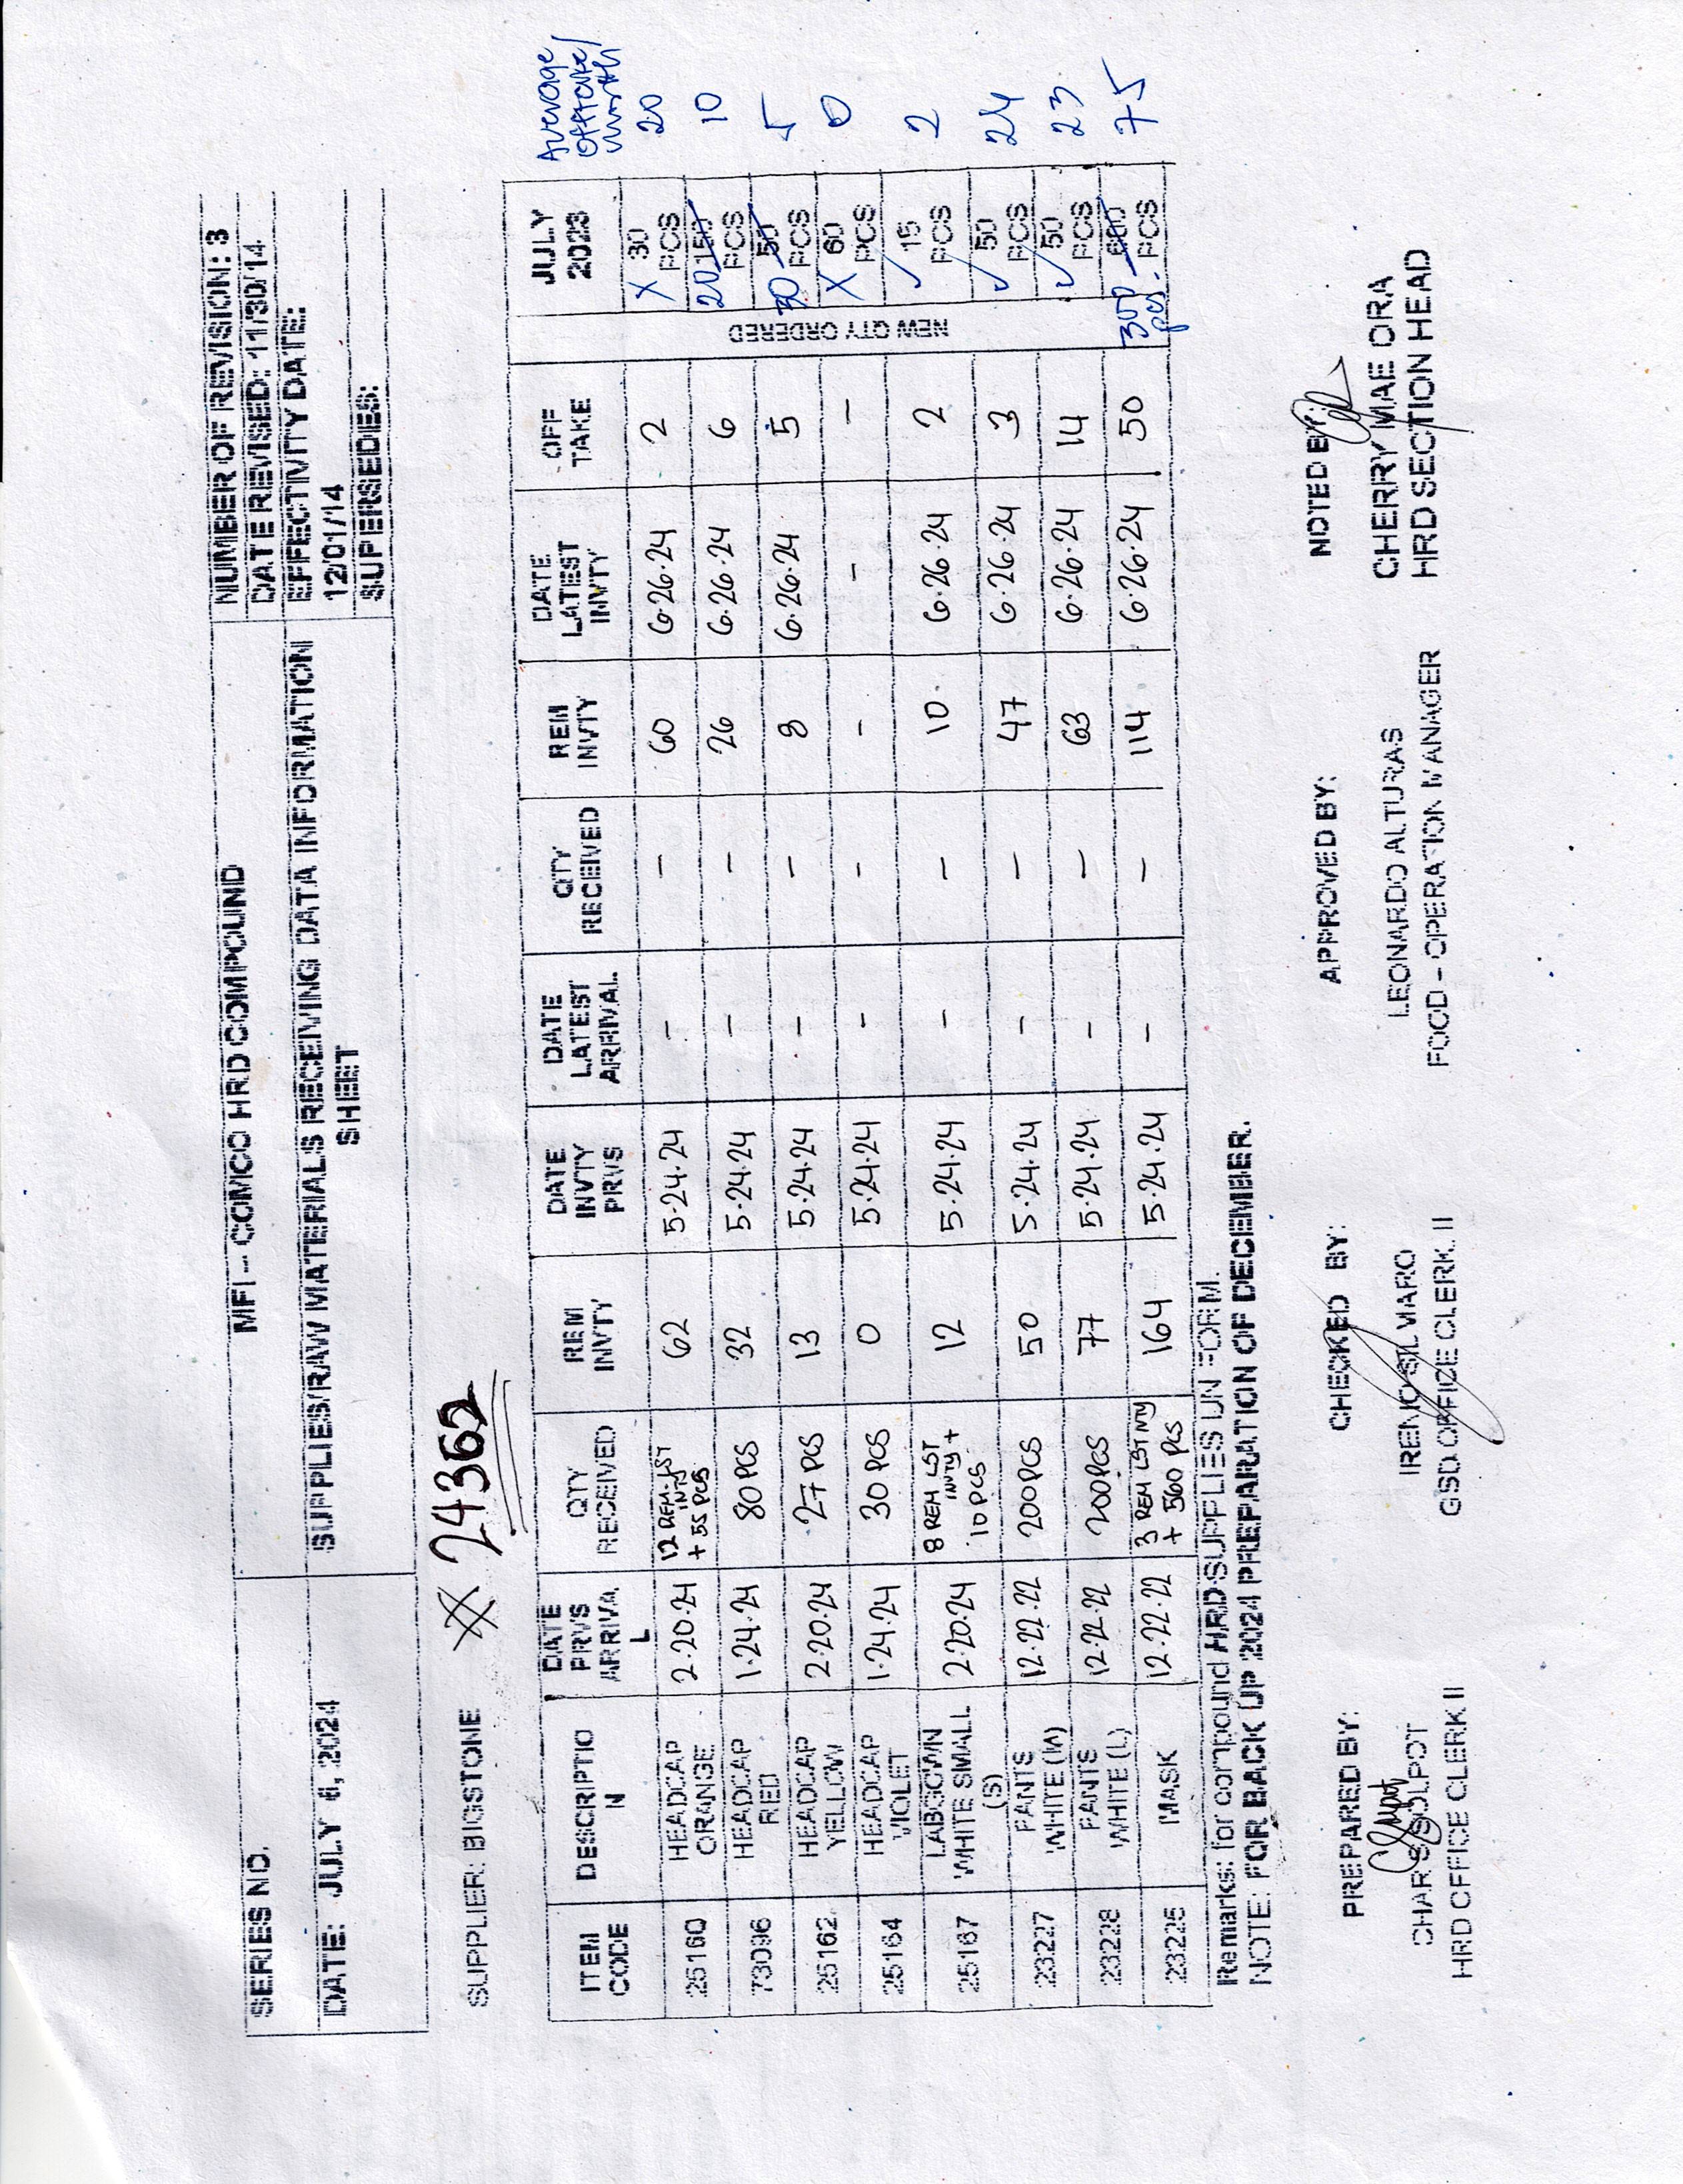 MFI – COMCO HRD COMPOUND
NUMBER OF REVISION: 3
SERIES NO.
DATE REVISED: 11/30/14
DATE: JULY 6, 2024
SUPPLIES/RAW MATERIALS RECEIVING DATA INFORMATION SHEET
EFFECTIVITY DATE: 12/01/14
SUPERSEDES:
# 24362
SUPPLIER: BIGSTONE
Average offtake/ month
ITEM CODE DESCRIPTIO N DATE PRVS ARRIVA L QTY RECEIVED REM INVTY DATE INVTY PRVS DATE LATEST ARRIVAL QTY RECEIVED REM INVTY DATE LATEST INVTY OFF TAKE NEW QTY ORDERED JULY 2023
25160 HEADCAP ORANGE 2.20.24 12 REM. LST INTY + 55 PCS 62 5.24.24 – – 60 6.26.24 2 X 30 PCS 20
73096 HEADCAP RED 1.24.24 80 PCS 32 5.24.24 – – 26 6.26.24 6 20 150 PCS 10
25162 HEADCAP YELLOW 2.20.24 27 PCS 13 5.24.24 – – 8 6.26.24 5 30 50 PCS 5
25164 HEADCAP VIOLET 1.24.24 30 PCS 0 5.24.24 – – – – – X 60 PCS 0
25167 LABGOWN WHITE SMALL (S) 2.20.24 8 REM LST INTY + 10 PCS 12 5.24.24 – – 10 6.26.24 2 ✓ 15 PCS 2
23227 PANTS WHITE (M) 12.22.22 200 PCS 50 5.24.24 – – 47 6.26.24 3 ✓ 50 PCS 24
23228 PANTS WHITE (L) 12.22.22 200 PCS 77 5.24.24 – – 63 6.26.24 14 ✓ 50 PCS 23
23225 MASK 12.22.22 3 REM LST INTY + 560 PCS 164 5.24.24 – – 114 6.26.24 50 300 pcs. PCS 75
Remarks: for compound HRD SUPPLIES UNIFORM.
NOTE: FOR BACK UP 2024 PREPARATION OF DECEMBER.
PREPARED BY: CHECKED BY: APPROVED BY: NOTED BY:
CHARISS OLPOT IRENO SILVARO LEONARDO ALTURAS CHERRY MAE ORA
HRD OFFICE CLERK II GSD OFFIZE CLERK II FOOD – OPERATION MANAGER HRD SECTION HEAD